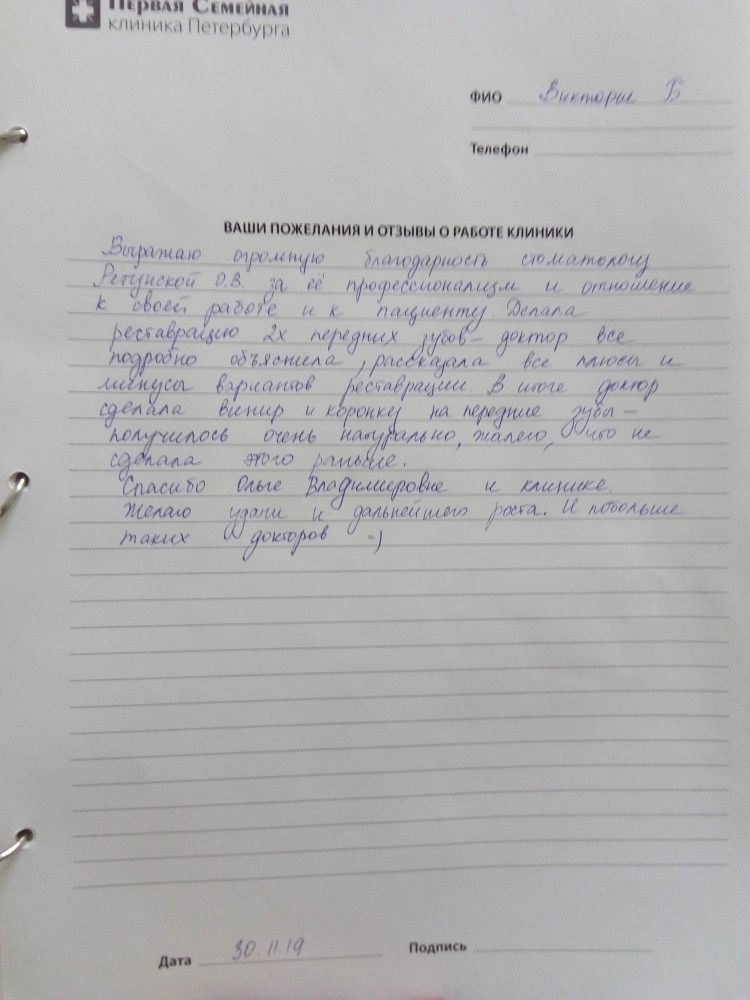 Первая Семейная
клиника Петербурга
ФИО Виктория Б
Телефон
ВАШИ ПОЖЕЛАНИЯ И ОТЗЫВЫ О РАБОТЕ КЛИНИКИ
Выражаю огромную благодарность стоматологу
Ретунской О.В. за её профессионализм и отношение
к своей работе и к пациенту. Делала
реставрацию 2х передних зубов – доктор все
подробно объяснила, рассказала все плюсы и
минусы вариантов реставрации. В итоге доктор
сделала винир и коронку на передние зубы –
получилось очень натурально, жалею, что не
сделала этого раньше.
Спасибо Ольге Владимировне и клинике.
Желаю удачи и дальнейшего роста. И побольше
таких докторов =)
Дата 30.11.19 Подпись